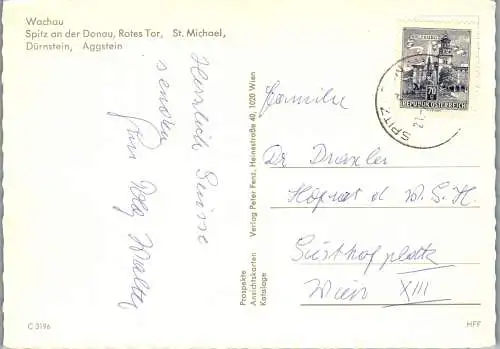 Wachau
Spitz an der Donau, Rotes Tor, St. Michael,
Dürnstein, Aggstein
Herzlich Grüsse
senden
Walter
Prospekte
Ansichtskarten
Kataloge
Verlag Peter Fenz, Heinestraße 40, 1020 Wien
70
REPUBLIK ÖSTERREICH
SPITZ
Familie
Dr
Hofrat d
Wien XIII
C 3196
HFF